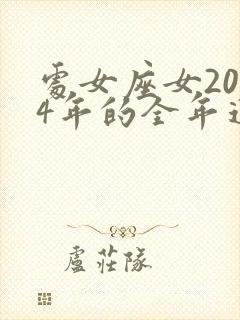 處女座女20
4年的全年運
盧莊隊